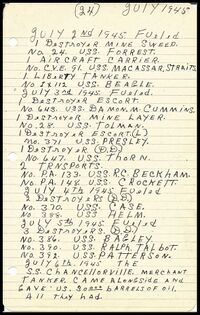 (24) JULY 1945
JULY 2nd 1945 Fueled
1 Destroyer Mine Sweep.
No. 24. USS. FORREST.
1 AIRCRAFT CARRIER.
No. C.V.E. 91. USS. MACASSAR, STRAITS
1 LIBERTY TANKER.
No. IX 112 USS. BEAGLE.
JULY 3rd 1945 Fueled.
1 Destroyer Escort.
No. 648. USS. DAMON, M. CUMMINGS.
1 Destroyer Mine Layer.
No. 28. USS. TOLMAN.
1 Destroyer Escort (L)
No. 371. USS. PRESLEY.
1 Destroyer (D.D.)
No. 647. USS. THORN.
2 TRANSPORTS.
No. PA. 133. USS. R.C. BECKHAM.
No. PA. 148. USS. CROCKETT.
JULY 4th 1945 Fueled
2 Destroyers (D.D.)
No. 370. USS. CASE.
No. 388. USS HELM.
JULY 5th 1945 Fueled
3 Destroyers. (D.D.)
No. 386. USS. BAGLEY.
No. 390. USS. RALPH, TALBOT.
No. 392. USS. PATTERSON.
JULY 6th 1945 THE
S.S. CHANCELLORVILLE. MERCHANT
TANKER. CAME ALONGSIDE AND
GAVE US. BARRELS OF OIL.
All they had.